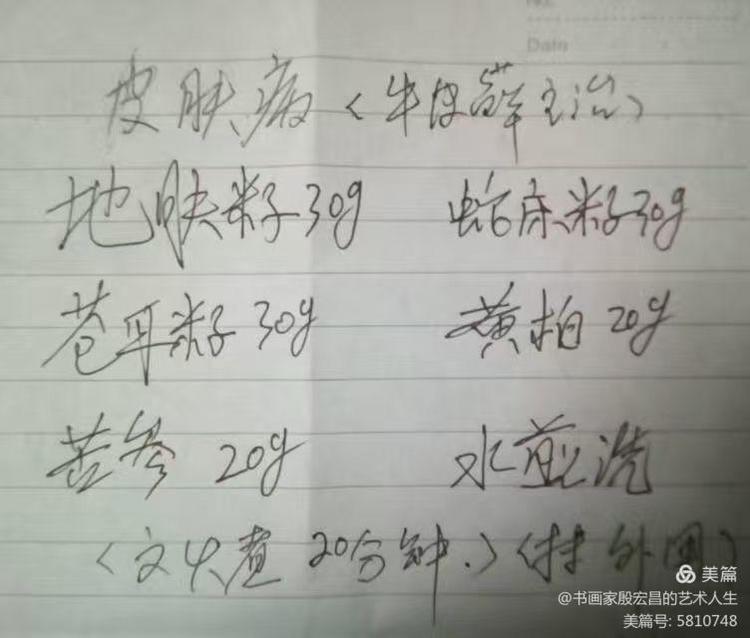 No.
Date
皮肤病(牛皮藓主治)
地肤籽30g 蛇床籽30g
苍耳籽30g 黄柏20g
苦参20g 水煎洗
(文火煮20分钟.)(外用)
美篇
@书画家殷宏昌的艺术人生
美篇号: 5810748